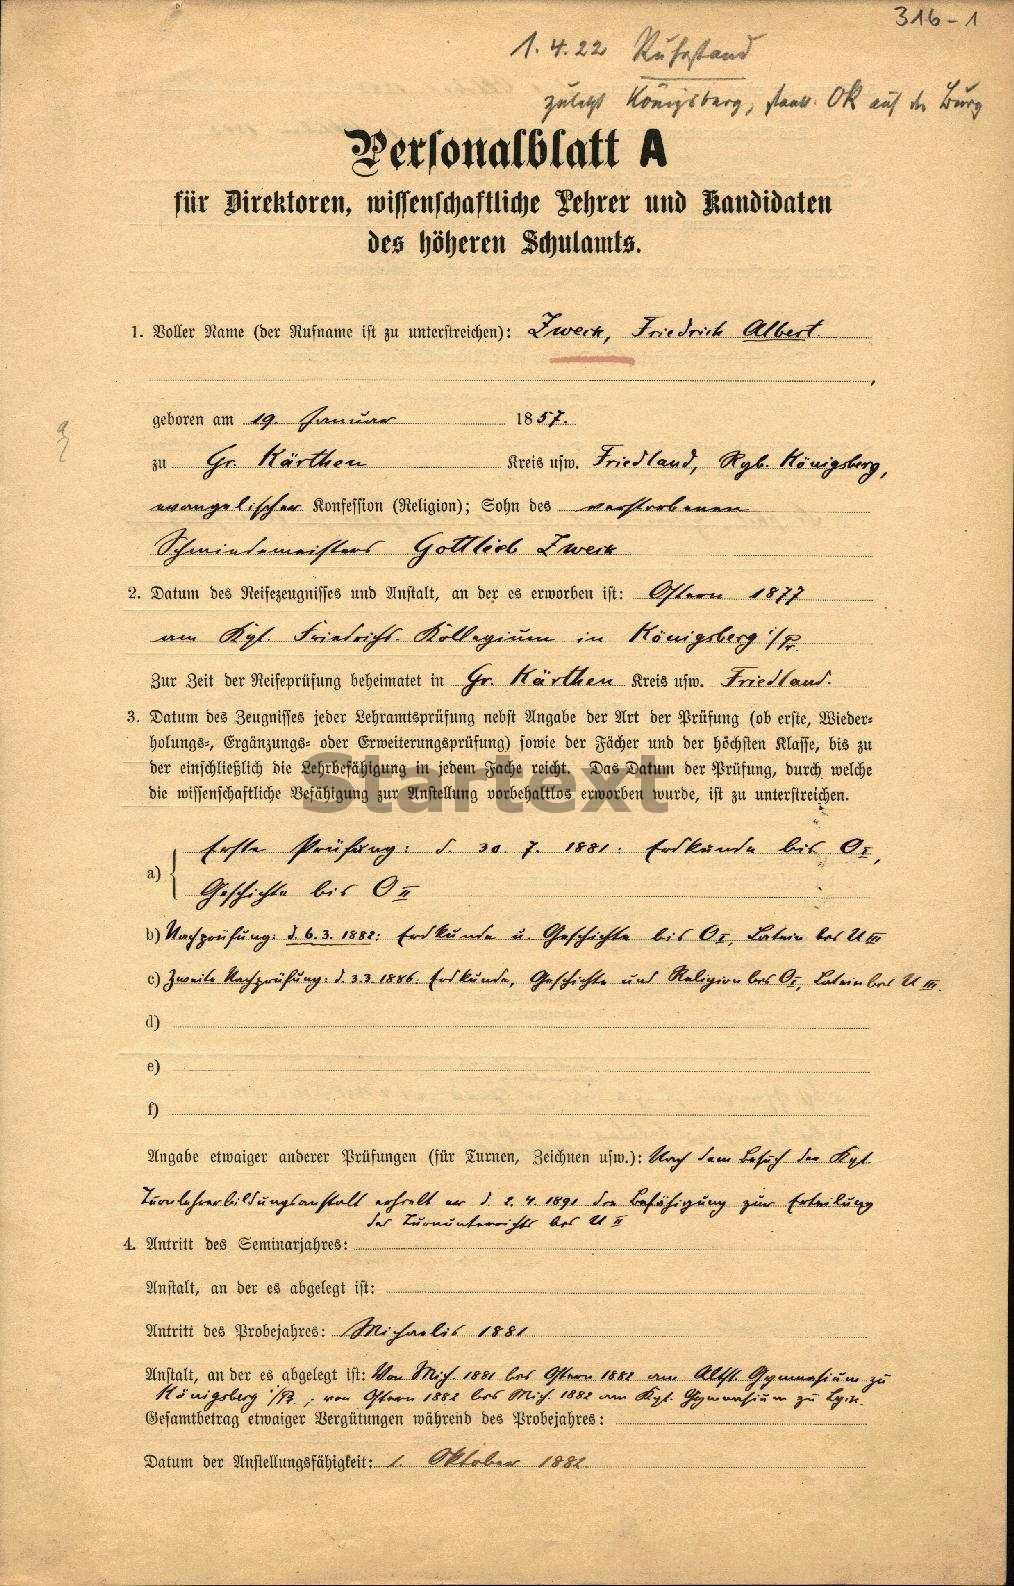 316-1
1.4.22 Ruhestand
zuletzt Königsberg, staatl. OR auf der Burg
Personalblatt A
für Direktoren, wissenschaftliche Lehrer und Kandidaten
des höheren Schulamts.
1. Voller Name (der Rufname ist zu unterstreichen): Zweck, Friedrich Albert
geboren am 19. Januar 1857.
zu Gr. Kärthen Kreis usw. Friedland, Rgb. Königsberg,
evangelischer Konfession (Religion); Sohn des verstorbenen
Schmiedemeisters Gottlieb Zweck
2. Datum des Reifezeugnisses und Anstalt, an der es erworben ist: Ostern 1877
am Kgl. Friedrichs-Kollegium in Königsberg i/Pr.
Zur Zeit der Reifeprüfung beheimatet in Gr. Kärthen Kreis usw. Friedland.
3. Datum des Zeugnisses jeder Lehramtsprüfung nebst Angabe der Art der Prüfung (ob erste, Wieder-
holungs-, Ergänzungs- oder Erweiterungsprüfung) sowie der Fächer und der höchsten Klasse, bis zu
der einschließlich die Lehrbefähigung in jedem Fache reicht. Das Datum der Prüfung, durch welche
die wissenschaftliche Befähigung zur Anstellung vorbehaltlos erworben wurde, ist zu unterstreichen.
Startext
a) Erste Prüfung: d. 30. 7. 1881: Erdkunde bis O I,
Geschichte bis O II
b) Nachprüfung: d. 6.3. 1882: Erdkunde u. Geschichte bis O I, Latein bis U III
c) Zweite Nachprüfung: d. 3.3.1886. Erdkunde, Geschichte und Religion bis O I, Latein bis U III.
d)
e)
f)
Angabe etwaiger anderer Prüfungen (für Turnen, Zeichnen usw.): Nach dem Besuch der Kgl.
Turnlehrerbildungsanstalt erhielt er d. 2. 4. 1891 die Befähigung zur Erteilung
des Turnunterrichts bis U II
4. Antritt des Seminarjahres:
Anstalt, an der es abgelegt ist:
Antritt des Probejahres: Michaelis 1881
Anstalt, an der es abgelegt ist: Von Mich. 1881 bis Ostern 1882 am Altst. Gymnasium zu
Königsberg i/Pr., von Ostern 1882 bis Mich. 1882 am Kgl. Gymnasium zu Lyck.
Gesamtbetrag etwaiger Vergütungen während des Probejahres:
Datum der Anstellungsfähigkeit: 1. Oktober 1882